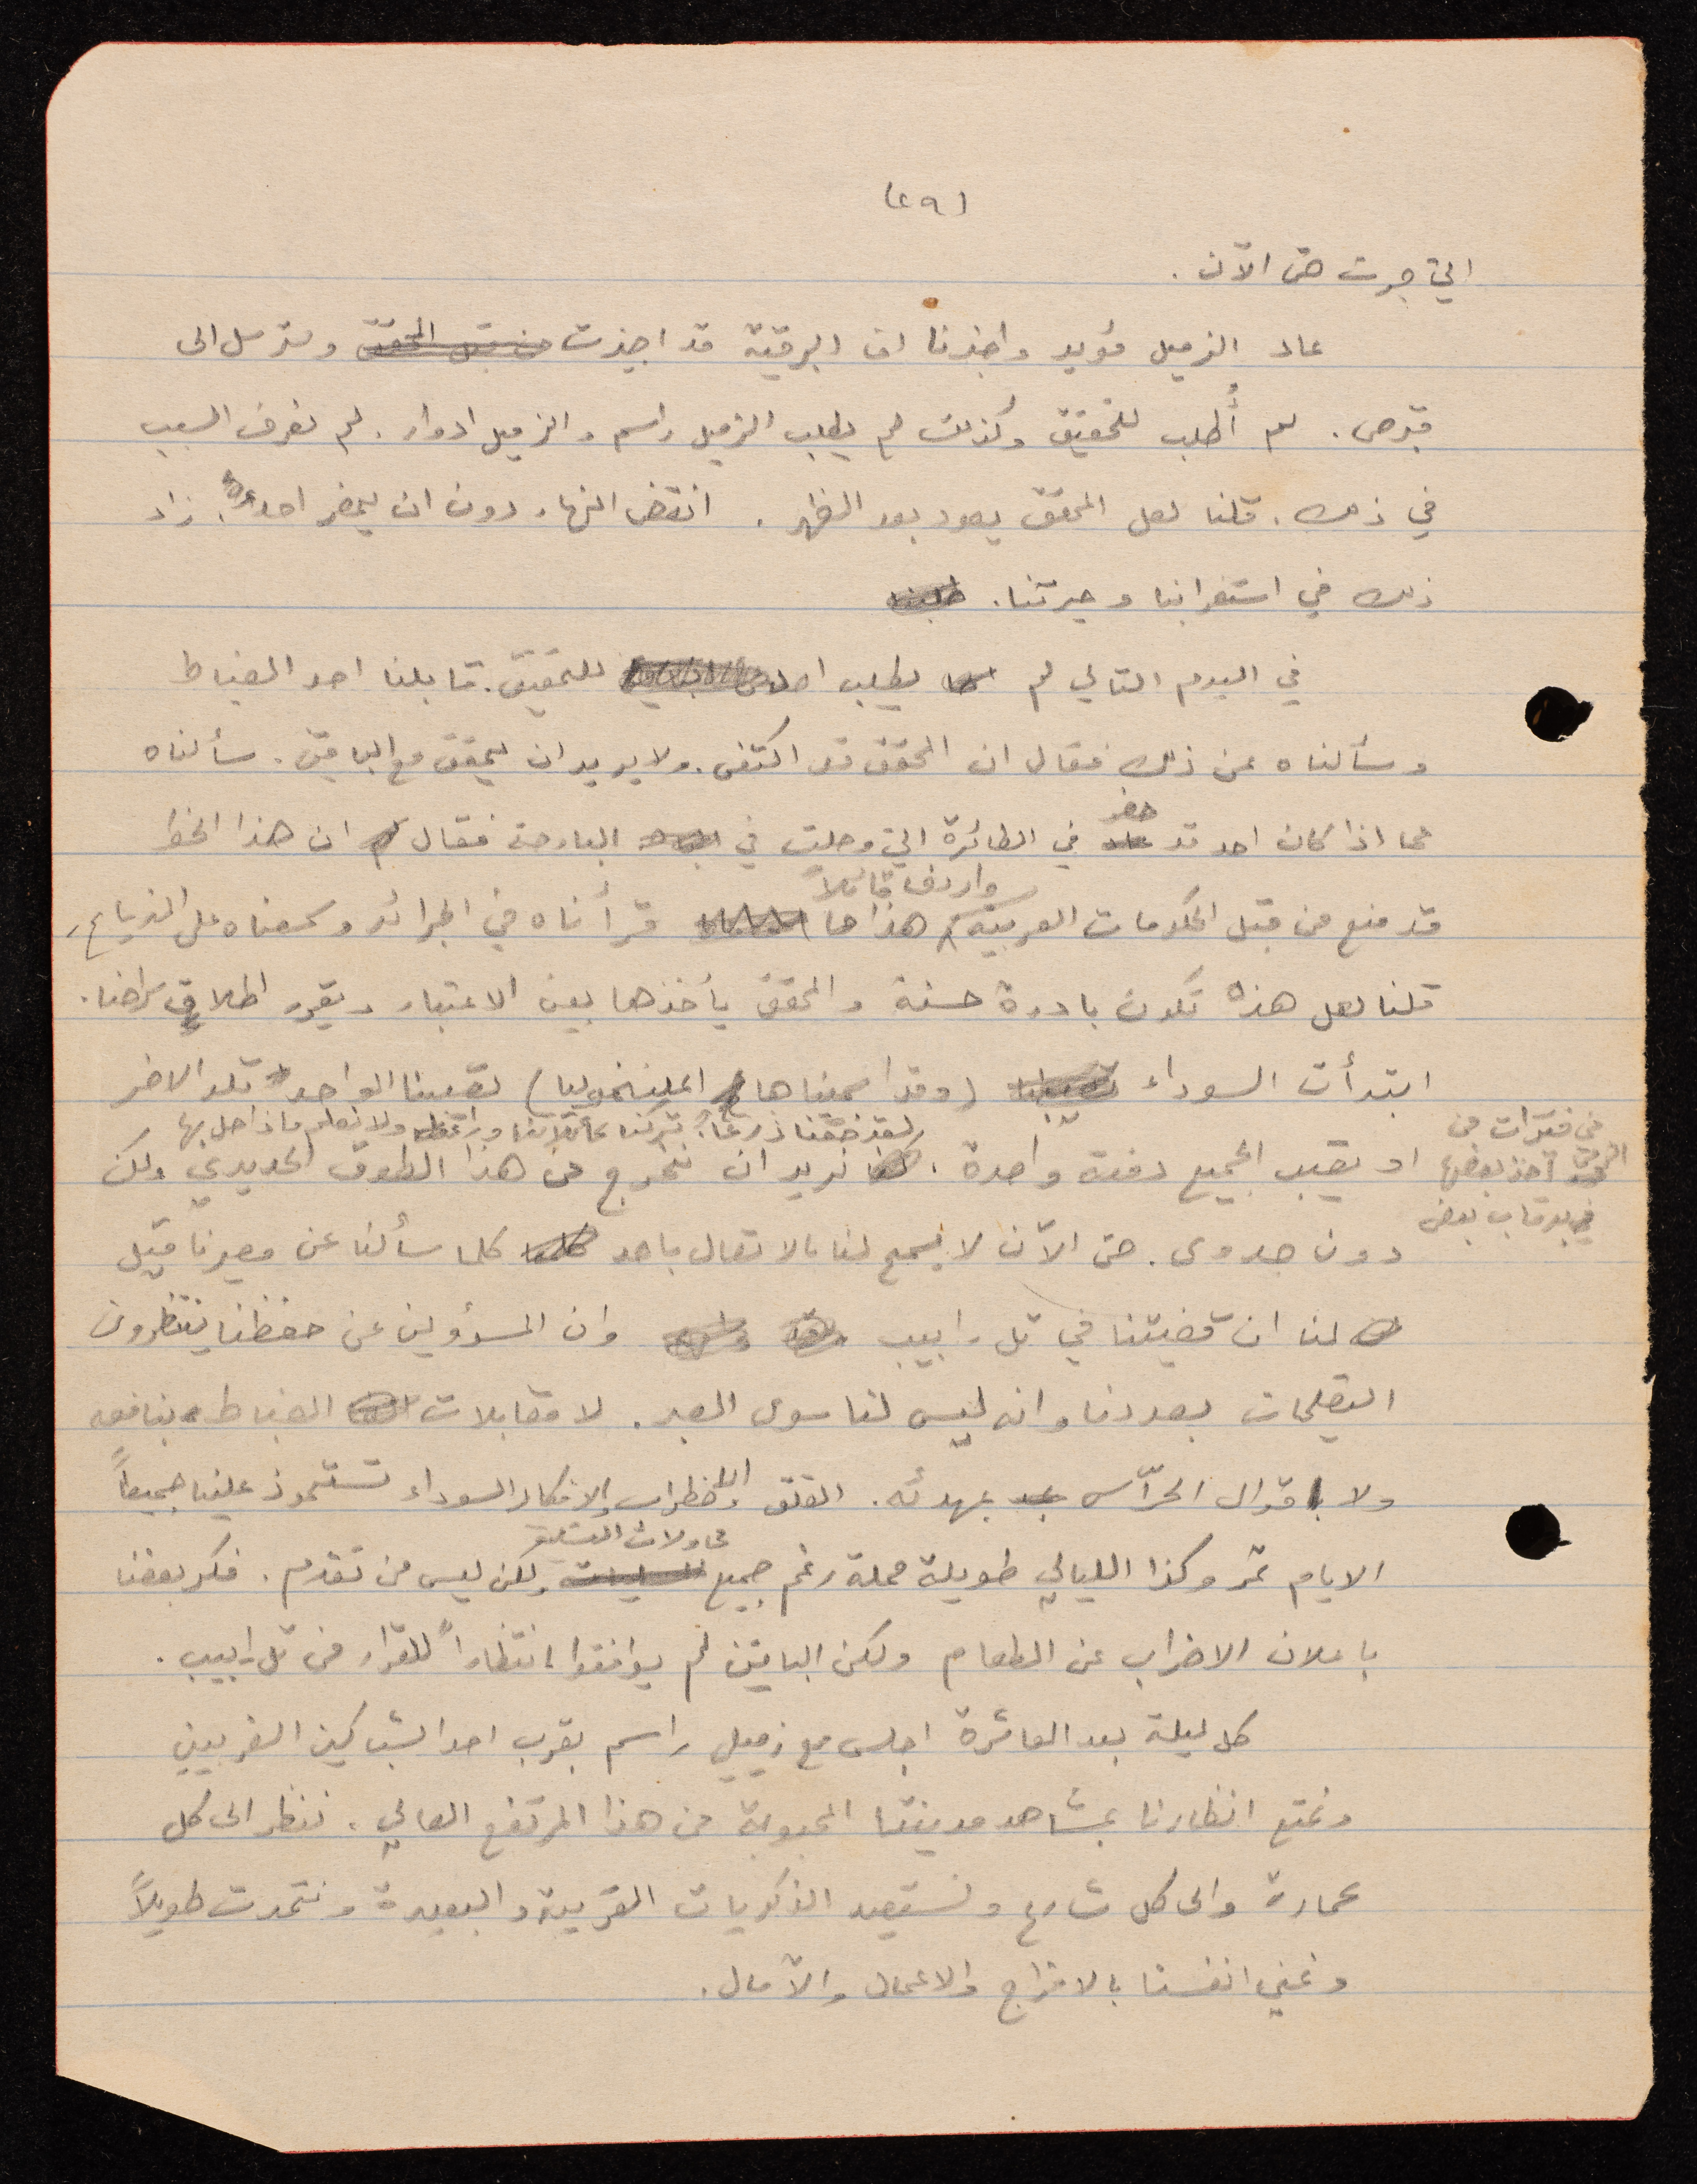 (٤٩)
التي جرت حتى الآن .
عاد الزميل مؤيد واخبرنا ان البرقية قد اجيزت من قبل المحقق وسترسل الى
قبرص . لم أُطلب للتحقيق وكذلك لم يطلب الزميل راسم والزميل ادوار . لم نعرف السبب
في ذلك . قلنا لعل المحقق يعود بعد الظهر . انقضى النهار دون ان يحضر احد . زاد
ذلك في استغرابنا وحيرتنا .
في اليوم التالي لم يطلب احد للتحقيق . قابلنا احد الضباط
وسألناه عن ذلك فقال ان المحقق قد اكتفى . ولا يريد ان يحقق مع الباقين . سألناه
عما اذا كان احد قد حضر في الطائرة التي وصلت في البارحة فقال ان هذا الخط
قد منع من قبل الحكومات العربية واردف قائلاً هذا ما قرأناه في الجرائد وسمعناه على المذياع ,
قلنا لعل هذه تكون بادرة حسنة والمحقق يأخذها بعين الاعتبار ويقرر اطلاق سراحنا .
ابتدأت السوداء (وقد اسميناها المليخوليا) تصيبنا الواحد تلو الاخر
في فترات من الزمن
قد اخذ بعضها
برقاب بعض
او تصيب الجميع دفعة واحدة . لقد ضقنا ذرعاً . تركنا عائلاتنا ولا نعلم ماذا حل بها
نريد ان نخرج من هذا الطوق الحديدي ولكن
دون جدوى . حتى الآن لا يسمح لنا بالاتصال باحد كلما سألنا عن مصيرنا قيل
لنا ان قضيتنا في تل ابيب وان المسؤولين عن حفظنا ينتظرون
التعليمات بصددنا وانه ليس لنا سوى الصبر . لا مقابلات الضباط بنافعه
ولا اقوال الحرّاس بمهدئه . القلق والاضطراب والافكار السوداء تستحوذ علينا جميعاً
الايام تمر وكذا الليالي طويلة مملة رغم جميع محاولات التسلية ولكن ليس من تقدم . فكر بعضنا
باعلان الاضراب عن الطعام ولكن الباقين لم يوافقوا انتظاراً للقرار من تل ابيب .
كل ليلة بعد العاشرة اجلس مع زميلي راسم بقرب احد الشباكين الغربيين
ونمتع انظارنا بمشاهد مدينتنا المحبوبة من هذا المرتفع العالي . ننظر الى كل
عمارة والى كل شارع ونستعيد الذكريات القريبة والبعيدة ونتحدث طويلاً
ونمني انفسنا بالافراج والاعمال والآمال .